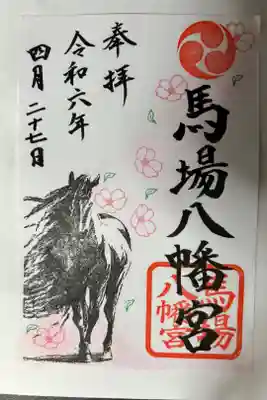 奉拝
令和六年
四月二十七日
馬場八幡宮
馬場
八幡宮